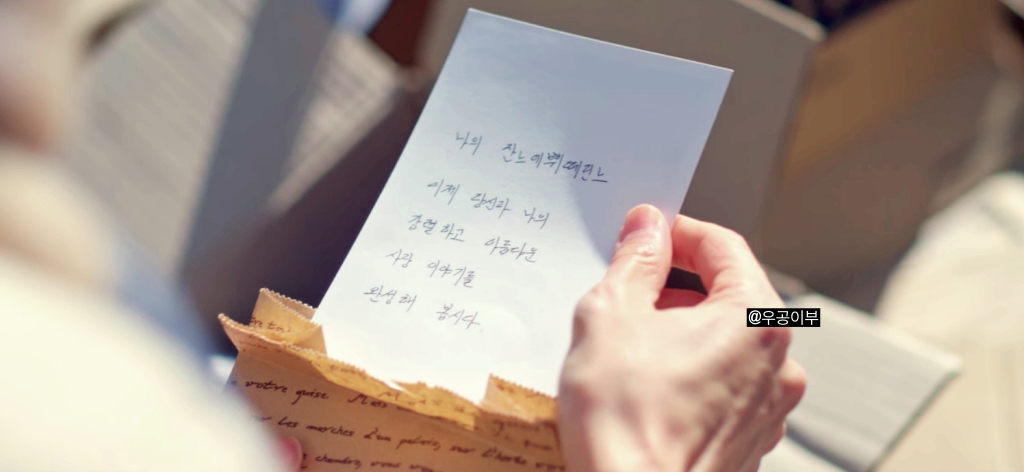 나의 잔느에뷔떼린느
이제 당신과 나의
강렬하고 아름다운
사랑 이야기를
완성해 봅시다.
@우공이부
votre guise. Mais
les marches d'un palais, sur l'herbe
chambre, vous vous